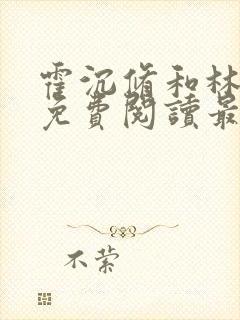 霍沉脩和林
免費閱讀最
不縈